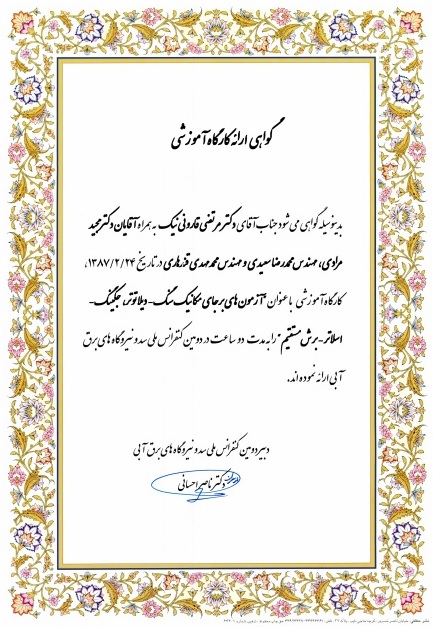 گواهی ارائه کارگاه آموزشی
بدینوسیله گواهی می شود جناب آقای دکتر مرتضی قارونی نیک به همراه آقایان دکتر مجید
مرادی، مهندس محمدرضا سعیدی و مهندس محمدمهدی قندهاری در تاریخ ۱۳۸۷/۲/۲۴،
کارگاه آموزشی با عنوان "آزمون های برجای مکانیک سنگ - دیلاتومتر، جکینگ -
اسلاتر - برش مستقیم" را به مدت دو ساعت در دومین کنفرانس ملی سد و نیروگاه های برق
آبی ارائه نموده اند.
دبیر دومین کنفرانس ملی سد و نیروگاه های برق آبی
دکتر ناصر احسانی